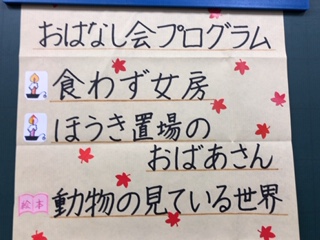 おはなし会プログラム
食わず女房
ほうき置場の
おばあさん
絵本 動物の見ている世界